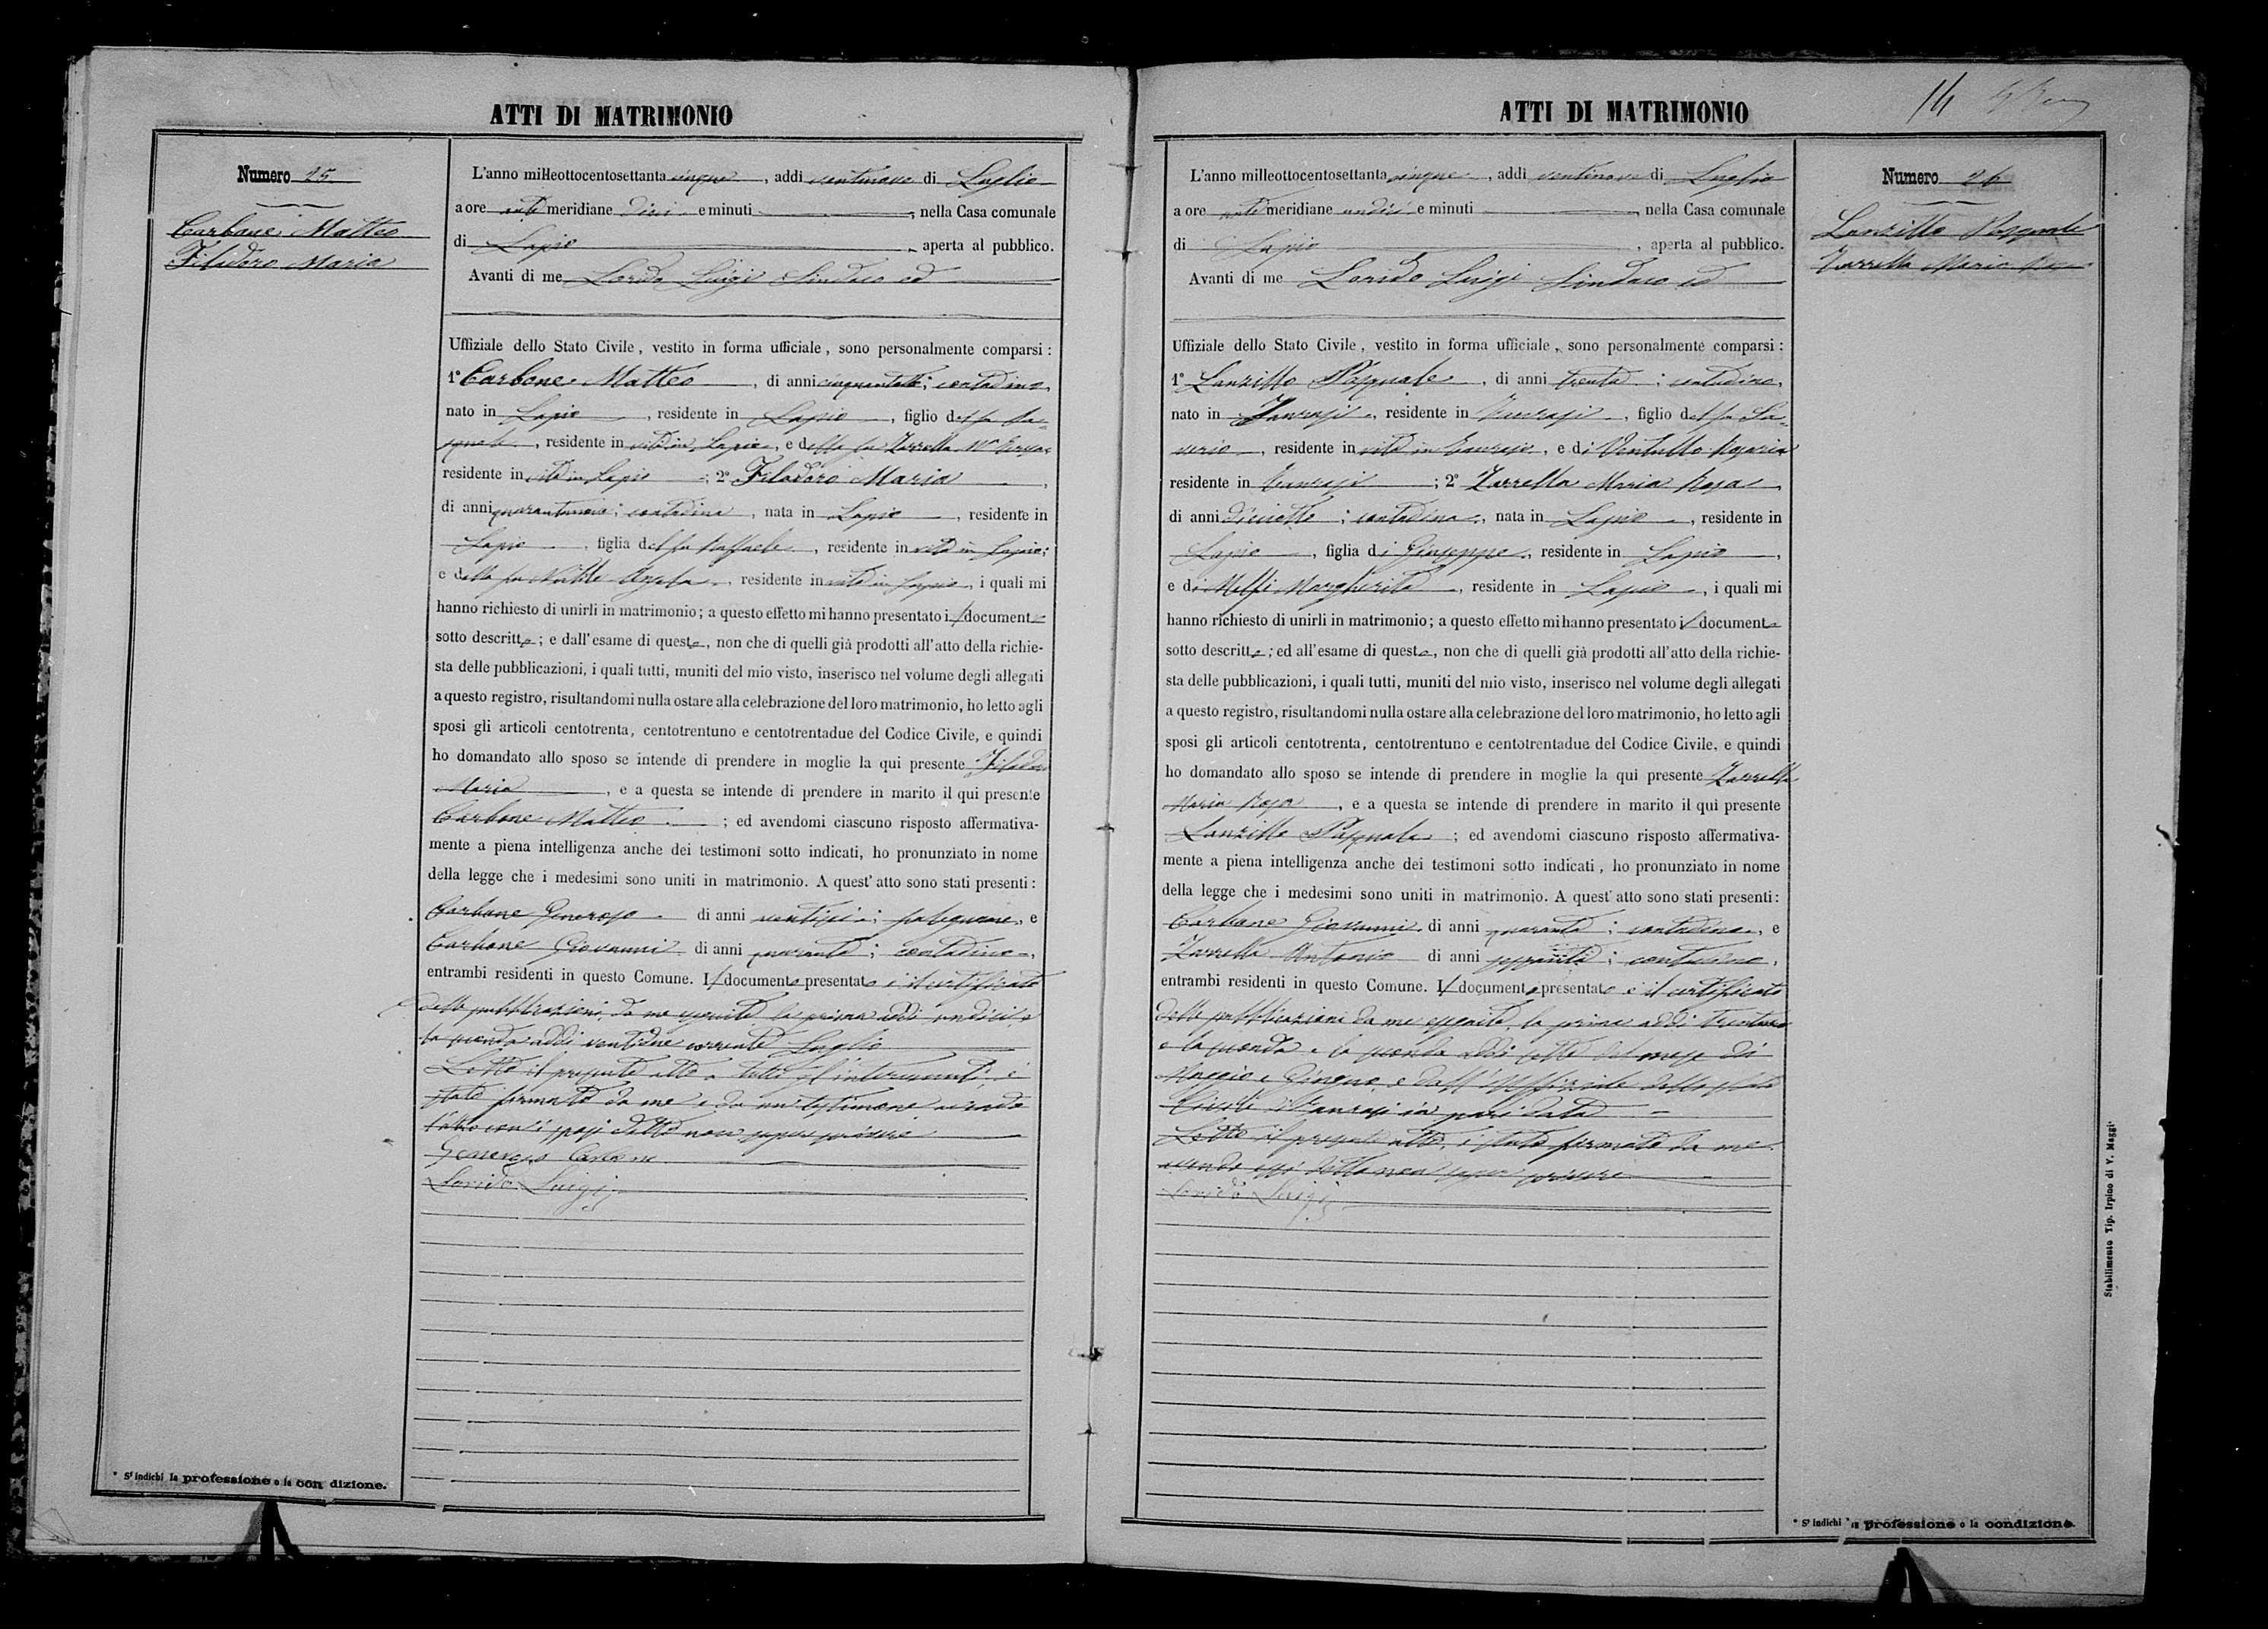 ATTI DI MATRIMONIO
Numero 25
Carbone Matteo
Filadoro Maria
L'anno milleottocentosettanta cinque, addì ventinove di Luglio
a ore anti meridiane dieci e minuti , nella Casa comunale
di Lapio , aperta al pubblico.
Avanti di me Lonido Luigi Sindaco ed
Uffiziale dello Stato Civile, vestito in forma ufficiale, sono personalmente comparsi:
1° Carbone Matteo , di anni cinquantotto; contadino,
nato in Lapio , residente in Lapio , figlio del fu Pa-
squale , residente in vita in Lapio , e della fu Zarrella
residente in vita in Lapio ; 2° Filadoro Maria ,
di anni quarantanove; contadina , nata in Lapio , residente in
Lapio , figlia del fu Raffaele , residente in vita in Lapio;
e della fu Angela , residente in vita in Lapio , i quali mi
hanno richiesto di unirli in matrimonio; a questo effetto mi hanno presentato il documento
sotto descritto; e dall'esame di questo, non che di quelli già prodotti all'atto della richie-
sta delle pubblicazioni, i quali tutti, muniti del mio visto, inserisco nel volume degli allegati
a questo registro, risultandomi nulla ostare alla celebrazione del loro matrimonio, ho letto agli
sposi gli articoli centotrenta, centotrentuno e centotrentadue del Codice Civile, e quindi
ho domandato allo sposo se intende di prendere in moglie la qui presente Filadoro
Maria , e a questa se intende di prendere in marito il qui presente
Carbone Matteo ; ed avendomi ciascuno risposto affermativa-
mente a piena intelligenza anche dei testimoni sotto indicati, ho pronunziato in nome
della legge che i medesimi sono uniti in matrimonio. A quest'atto sono stati presenti:
Carbone Generoso di anni ventisei; falegname, e
Carbone Giovanni di anni quaranta; contadino,
entrambi residenti in questo Comune. Il documento presentato è il certificato
delle pubblicazioni da me eseguite la prima addì undici e
la seconda addì ventidue corrente Luglio
Letto il presente atto a tutti gl'intervenuti, è
stato firmato da me e da un testimone avendo
l'altro con i sposi detto non saper scrivere
Generoso Carbone
Lonido Luigi
* Si indichi la professione o la condizione.
ATTI DI MATRIMONIO
14
Numero 26
Lanzillo Pasquale
Zarrella Maria Rosa
L'anno milleottocentosettanta cinque, addì ventinove di Luglio
a ore anti meridiane undici e minuti , nella Casa comunale
di Lapio , aperta al pubblico.
Avanti di me Lonido Luigi Sindaco ed
Uffiziale dello Stato Civile, vestito in forma ufficiale, sono personalmente comparsi:
1° Lanzillo Pasquale , di anni trenta ; contadino,
nato in Taurasi , residente in Taurasi , figlio del fu Sa-
verio , residente in vita in Taurasi , e di Ventullo Rosaria
residente in Taurasi ; 2° Zarrella Maria Rosa ,
di anni diciotto ; contadina , nata in Lapio , residente in
Lapio , figlia di Giuseppe , residente in Lapio ,
e di Melfi Margherita , residente in Lapio , i quali mi
hanno richiesto di unirli in matrimonio; a questo effetto mi hanno presentato il documento
sotto descritto; ed all'esame di questo, non che di quelli già prodotti all'atto della richie-
sta delle pubblicazioni, i quali tutti, muniti del mio visto, inserisco nel volume degli allegati
a questo registro, risultandomi nulla ostare alla celebrazione del loro matrimonio, ho letto agli
sposi gli articoli centotrenta, centotrentuno e centotrentadue del Codice Civile, e quindi
ho domandato allo sposo se intende di prendere in moglie la qui presente Zarrella
Maria Rosa , e a questa se intende di prendere in marito il qui presente
Lanzillo Pasquale ; ed avendomi ciascuno risposto affermativa-
mente a piena intelligenza anche dei testimoni sotto indicati, ho pronunziato in nome
della legge che i medesimi sono uniti in matrimonio. A quest'atto sono stati presenti:
Carbone Giovanni di anni quaranta ; contadino, e
Zarrella Antonio di anni sessanta ; contadino,
entrambi residenti in questo Comune. Il documento presentato è il certificato
delle pubblicazioni da me eseguite, la prima addì trentuno
e la seconda e la seconda addì sette del mese di
Maggio e Giugno, e dall'Uffiziale dello Stato
Civile di Taurasi in pari data
Letto il presente atto, è stato firmato da me
avendo essi detto non saper scrivere
Lonido Luigi
* Si indichi la professione o la condizione.
Stabilimento Tip. Irpino di V. Maggi